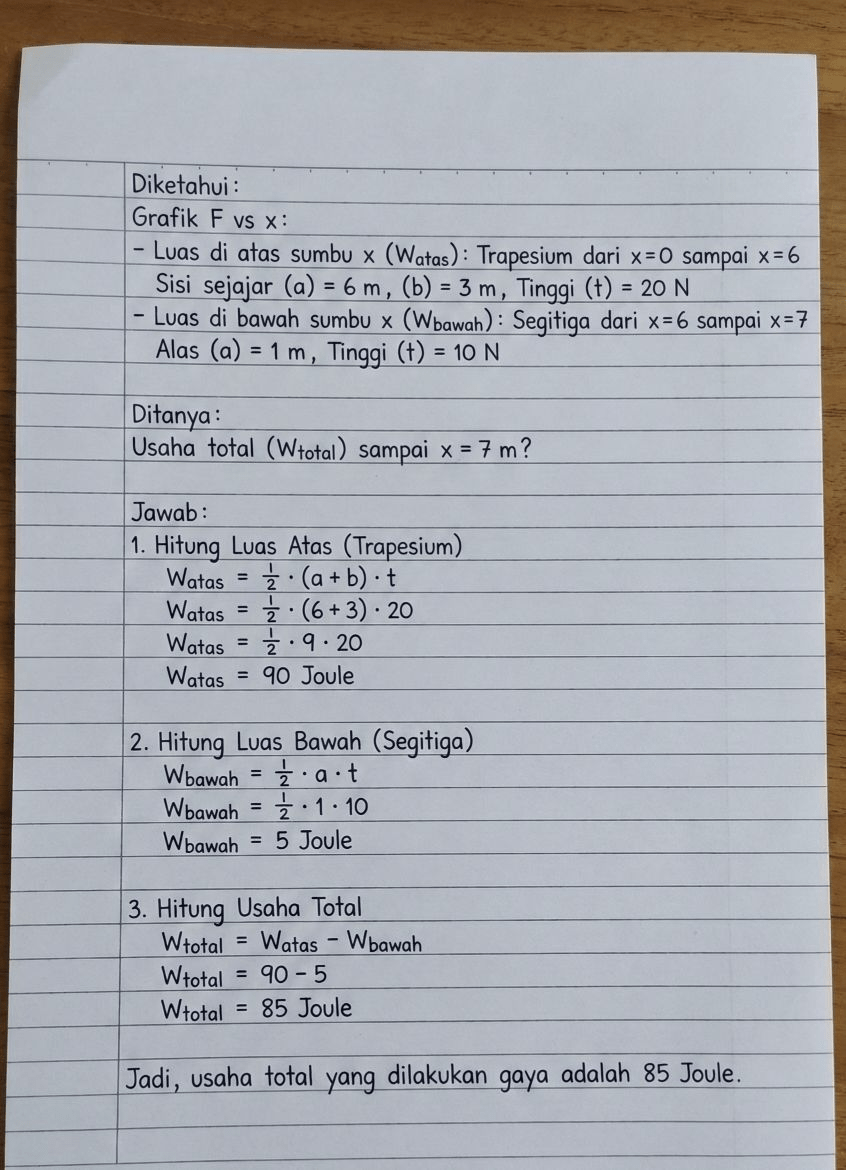 Diketahui:
Grafik F vs x:
- Luas di atas sumbu x (Watas): Trapesium dari x=0 sampai x=6
Sisi sejajar (a) = 6 m, (b) = 3 m, Tinggi (t) = 20 N
- Luas di bawah sumbu x (Wbawah): Segitiga dari x=6 sampai x=7
Alas (a) = 1 m, Tinggi (t) = 10 N
Ditanya:
Usaha total (Wtotal) sampai x = 7 m?
Jawab:
1. Hitung Luas Atas (Trapesium)
Watas = 1/2 · (a + b) · t
Watas = 1/2 · (6 + 3) · 20
Watas = 1/2 · 9 · 20
Watas = 90 Joule
2. Hitung Luas Bawah (Segitiga)
Wbawah = 1/2 · a · t
Wbawah = 1/2 · 1 · 10
Wbawah = 5 Joule
3. Hitung Usaha Total
Wtotal = Watas - Wbawah
Wtotal = 90 - 5
Wtotal = 85 Joule
Jadi, usaha total yang dilakukan gaya adalah 85 Joule.